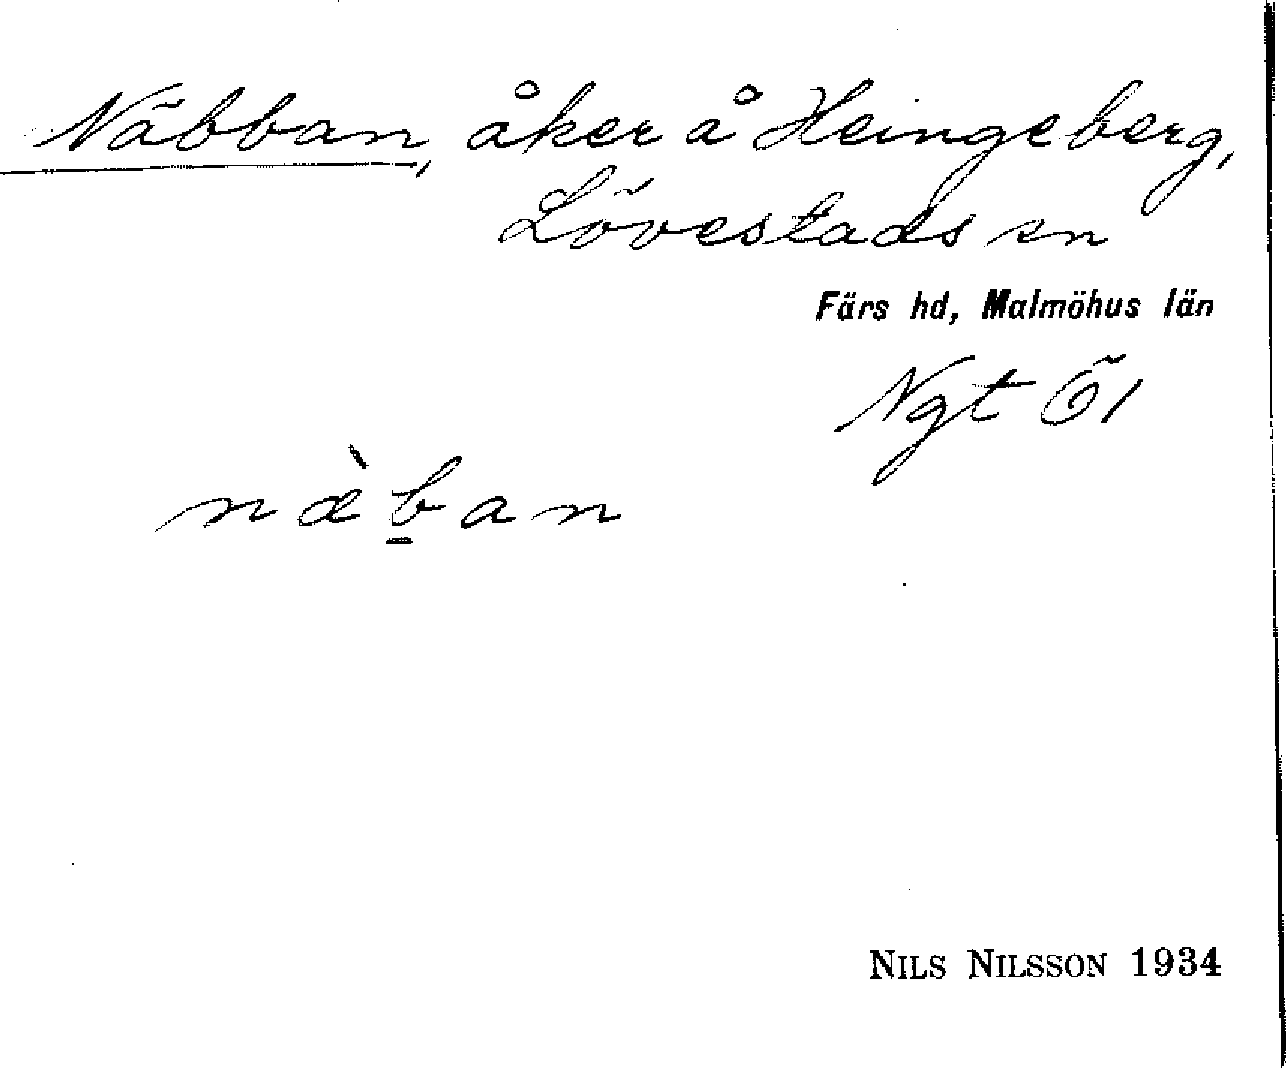 Näbban, åker å Heingeberg,
Lövestads sn
Färs hd, Malmöhus län
Ngt Ö1
næ̀b̲an
NILS NILSSON 1934